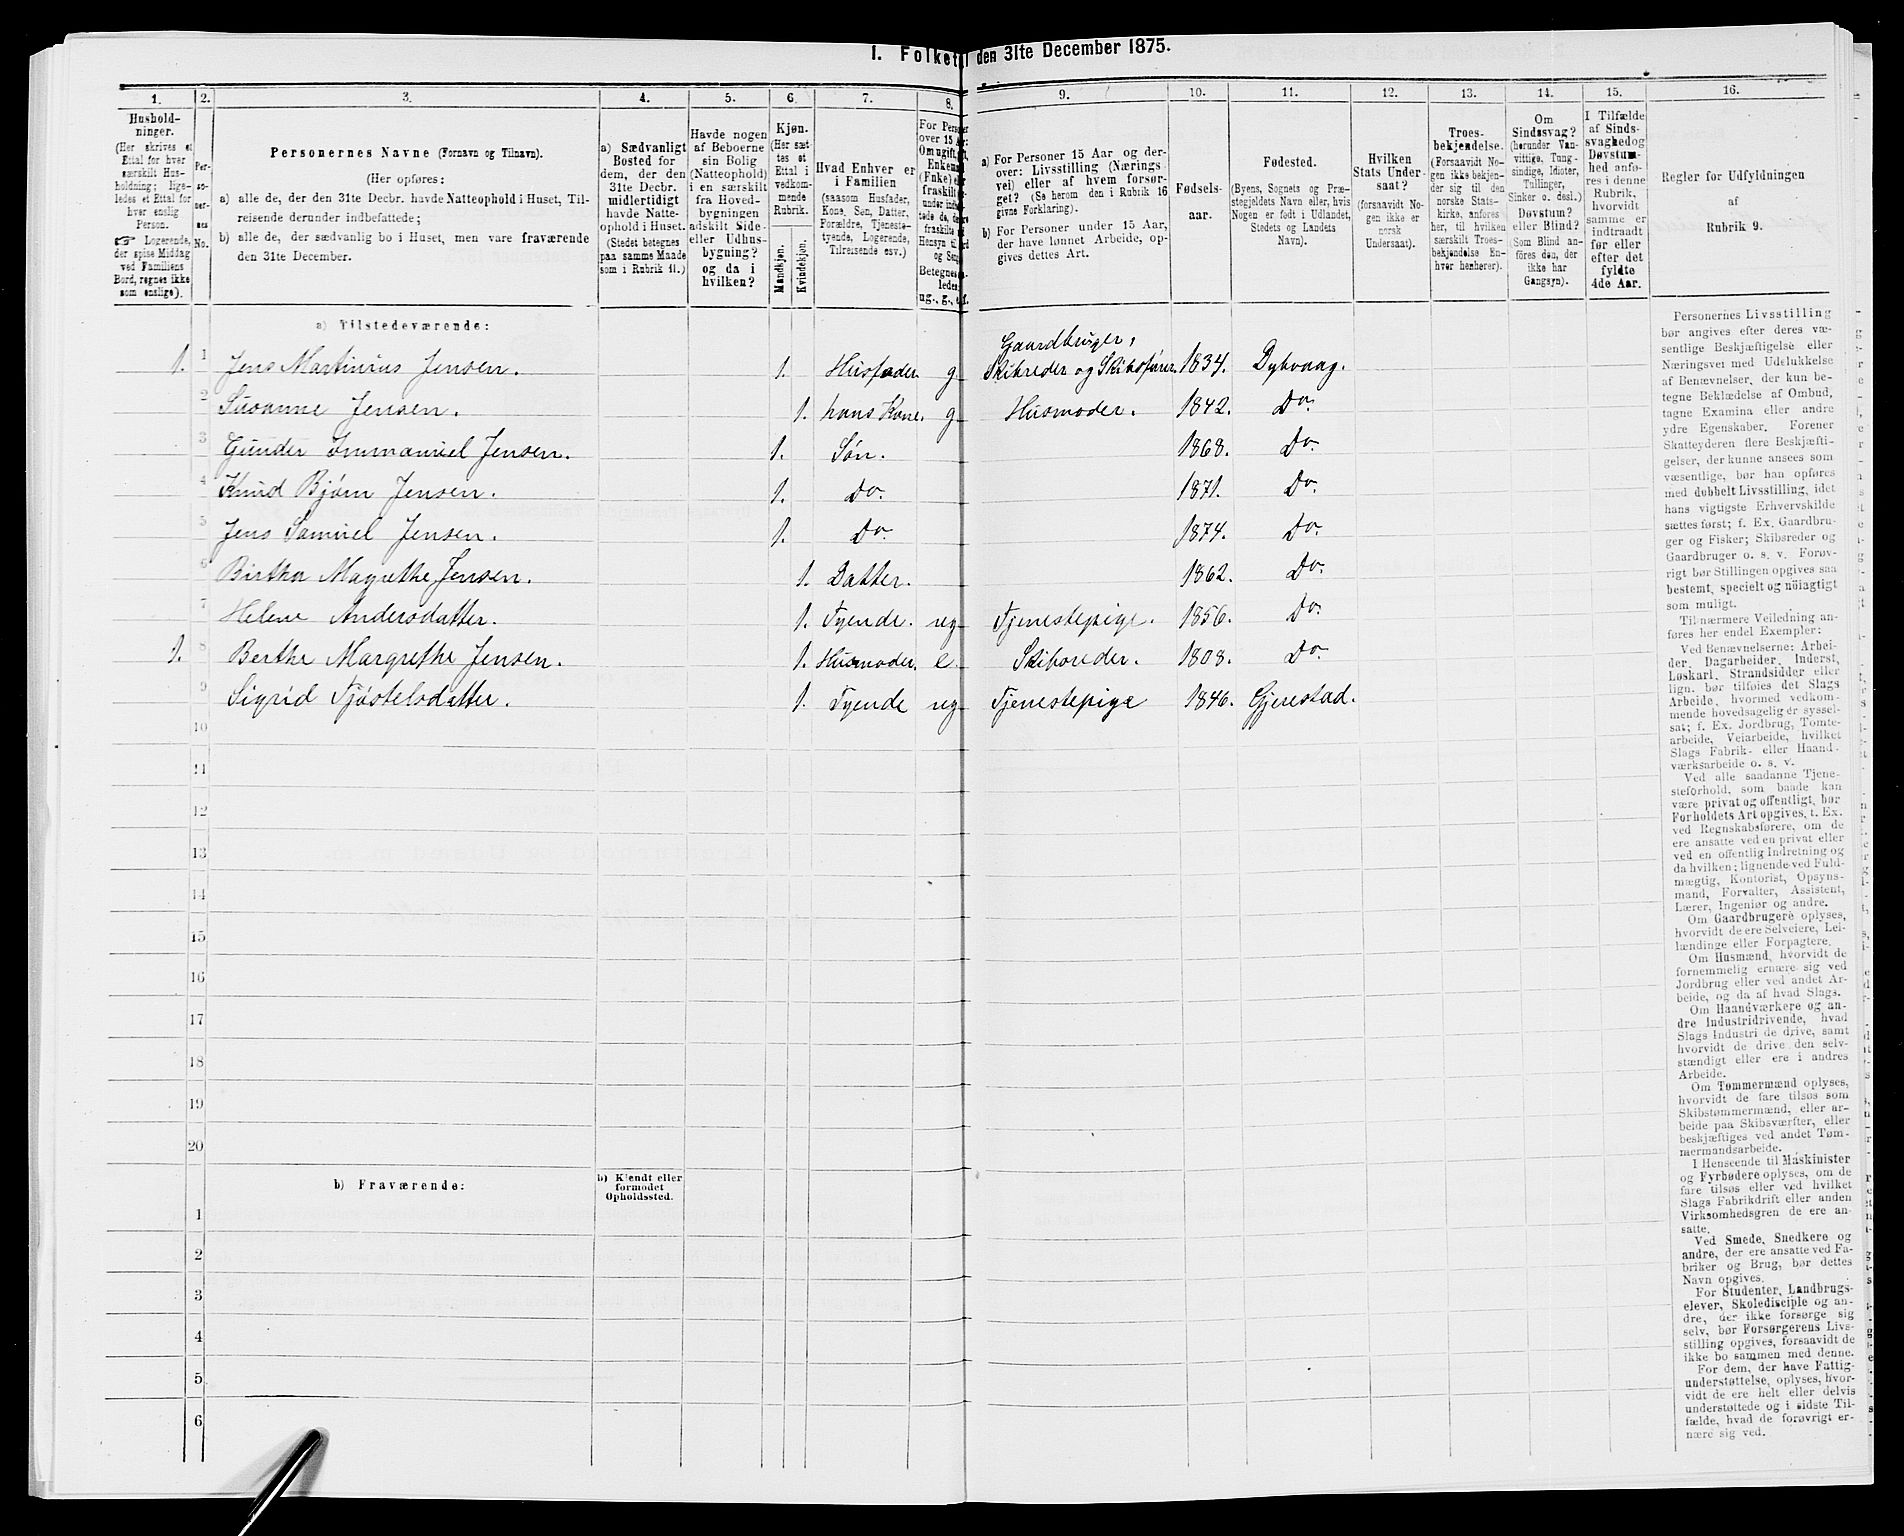 1. Folketæl den 31te December 1875.
1. 2. 3. 4. 5. 6. 7. 8. 9. 10. 11. 12. 13. 14. 15. 16.
Hushold-
ninger.
(Her skrives et
Ettal for hver
særskilt Hus-
holdning; lige-
ledes et Ettal for
hver enslig
Person.
☞ Logerende,
der spise Middag
ved Familiens
Bord, regnes ikke
som enslige).
Per-
so-
ner-
nes
No.
Personernes Navne (Fornavn og Tilnavn).
(Her opføres:
a) alle de, der den 31te Decbr. havde Natteophold i Huset, Til-
reisende derunder indbefattede;
b) alle de, der sædvanlig bo i Huset, men vare fraværende
den 31te December.
a) Sædvanligt
Bosted for
dem, der den
31te Decbr.
midlertidigt
havde Natte-
ophold i Huset.
(Stedet betegnes
paa samme Maade
som i Rubrik 11.)
Havde nogen
af Beboerne
sin Bolig
(Natteophold)
i en særskilt
fra Hoved-
bygningen
adskilt Side-
eller Udhus-
bygning?
og da i
hvilken?
Kjøn.
(Her sæt-
tes et
Ettal i
vedkom-
mende
Rubrik.
Mandkjøn.
Kvindekjøn.
Hvad Enhver er
i Familien
(saasom Husfader,
Kone, Søn, Datter,
Forældre, Tjeneste-
tyende, Logerende,
Tilreisende osv.)
For Perso
over 15 Aa
Om ugift,
Enkem
(Enke) e
fraskilt
under ind
tede de,
fraskilte
Hensyn til
og Sen
Betegnes
ledes
ug., g., e. f.
a) For Personer 15 Aar og der-
over: Livsstilling (Nærings-
vei) eller af hvem forsør-
get? (Se herom den i Rubrik 16
givne Forklaring).
b) For Personer under 15 Aar,
der have lønnet Arbeide, op-
gives dettes Art.
Fødsels-
aar.
Fødested.
(Byens, Sognets og Præ-
stegjeldets Navn eller, hvis
Nogen er født i Udlandet,
Stedets og Landets
Navn).
Hvilken
Stats Under-
saat?
(forsaavidt No-
gen ikke er
norsk
Undersaat).
Troes-
bekjendelse.
(Forsaavidt No-
gen ikke bekjen-
der sig til den
norske Stats-
kirke, anføres
her, til hvilken
særskilt Troes-
bekjendelse En-
hver henhører).
Om
Sindssvag?
(herunder Van-
vittige, Tung-
sindige, Idioter,
Tullinger,
Sinker o. desl.)
Døvstum?
eller Blind?
(Som Blind an-
føres den, der
ikke har
Gangsyn).
I Tilfælde
af Sinds-
svaghed og
Døvstum-
hed anfø-
res i denne
Rubrik,
hvorvidt
samme er
indtraadt
før eller
efter det
fyldte
4de Aar.
Regler for Udfyldningen
af
Rubrik 9.
a) Tilstedeværende:
1. 1 Jens Martinius Jensen. 1. Husfader g Gaardbruger, Skibreder og Skibsfører 1834. Dybvaag.
2 Susanne Jensen. 1. hans Kone. g Husmoder. 1842. Do.
3 Gunder Immanuel Jensen. 1. Søn. 1868. Do.
4 Knud Bjørn Jensen. 1. Do. 1871. Do.
5 Jens Samuel Jensen. 1. Do. 1874. Do.
6 Birtha Magrethe Jensen. 1. Datter. 1862. Do.
7 Helene Andersdatter. 1. Tyende. ug Tjenestepige. 1856. Do.
1. 8 Berthe Margrethe Jensen. 1. Husmoder. e. Skibsreder. 1808. Do.
9 Sigrid Tjøstelsdatter. 1. Tyende ug Tjenestepige 1846. Gjerestad.
10
11
12
13
14
15
16
17
18
19
20
b) Fraværende:
b) Kjendt eller
formodet
Opholdssted.
1
2
3
4
5
6
Personernes Livsstilling
bør angives efter deres væ-
sentlige Beskjæftigelse eller
Næringsvei med Udelukkelse
af Benævnelser, der kun be-
tegne Beklædelse af Ombud,
tagne Examina eller andre
ydre Egenskaber. Forener
Skatteyderen flere Beskjæfti-
gelser, der kunne ansees som
væsentlige, bør han opføres
med dobbelt Livsstilling, idet
hans vigtigste Erhvervskilde
sættes først; f. Ex. Gaardbru-
ger og Fisker; Skibsreder og
Gaardbruger o. s. v. Forøv-
rigt bør Stillingen opgives saa
bestemt, specielt og nøiagtigt
som muligt.
Til nærmere Veiledning an-
føres her endel Exempler:
Ved Benævnelserne: Arbei-
der, Dagarbeider, Inderst,
Løskarl, Strandsidder eller
lign. bør tilføies det Slags
Arbeide, hvormed vedkom-
mende hovedsagelig er syssel-
sat; f. Ex. Jordbrug, Tomte-
arbeide, Veiarbeide, hvilket
Slags Fabrik- eller Haand-
værksarbeide o. s. v.
Ved alle saadanne Tjene-
steforhold, som baade kan
være privat og offentligt, bør
Forholdets Art opgives, t. Ex.
ved Regnskabsførere, om de
ere ansatte ved en privat eller
ved en offentlig Indretning og
da hvilken; lignende ved Fuld-
mægtig, Kontorist, Opsyns-
mand, Forvalter, Assistent,
Lærer, Ingeniør og andre.
Om Gaardbrugere oplyses,
hvorvidt de ere Selveiere, Lei-
lændinge eller Forpagtere.
Om Husmænd, hvorvidt de
fornemmelig ernære sig ved
Jordbrug eller ved andet Ar-
beide, og da af hvad Slags.
Om Haandværkere og an-
dre Industridrivende, hvad
Slags Industri de drive, samt
hvorvidt de drive den selv-
stændigt eller ere i andres
Arbeide.
Om Tømmermænd oplyses,
hvorvidt de fare tilsøs som
Skibstømmermænd, eller ar-
beide paa Skibsværfter, eller
beskjæftiges ved andet Tøm-
mermandsarbeide.
I Henseende til Maskinister
og Fyrbødere oplyses, om de
fare tilsøs eller ved hvilket
Slags Fabrikdrift eller anden
Virksomhedsgren de ere an-
satte.
Ved Smede, Snedkere og
andre, der ere ansatte ved Fa-
briker og Brug, bør dettes
Navn opgives.
For Studenter, Landbrugs-
elever, Skoledisciple og an-
dre, der ikke forsørge sig
selv, bør Forsørgerens Livs-
stilling opgives, forsaavidt de
ikke bo sammen med denne.
For dem, der have Fattig-
understøttelse, oplyses, hvor-
vidt de ere helt eller delvis
understøttede og i sidste Til-
fælde, hvad de forøvrigt er-
nære sig ved.